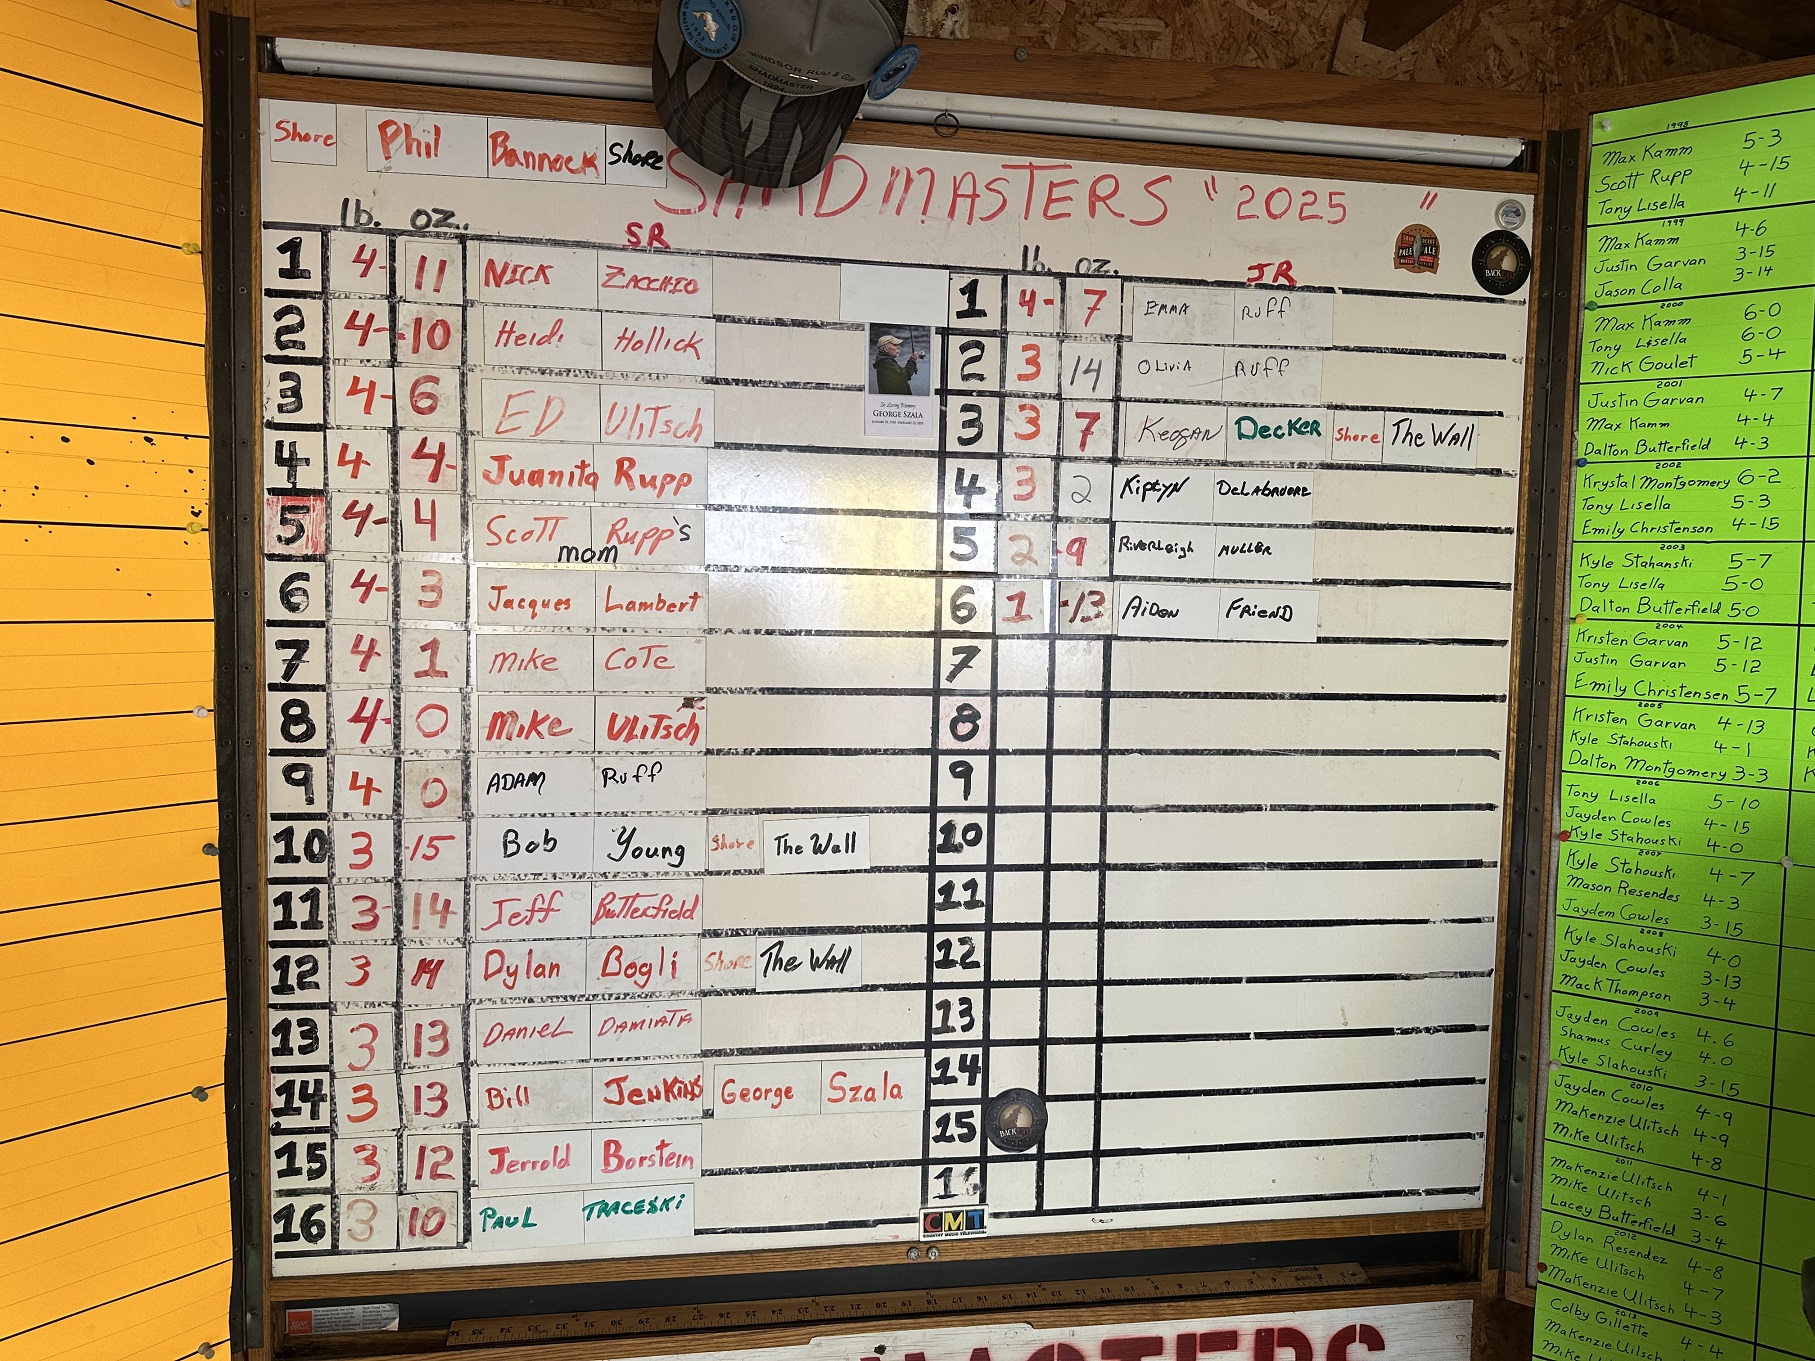 WINDSOR ROD & GUN
SHADMASTER
1994
Shore Phil Bannock Shore
SHADMASTERS "2025"
lb. oz. SR
1 4- 11 NICK ZACCHIO
2 4- -10 Heidi Hollick
3 4- 6 ED Ulitsch
4 4 4- Juanita Rupp
5 4- 4 Scott Rupp's
mom
6 4- 3 Jacques Lambert
7 4 1 Mike CoTe
8 4- 0 Mike Ulitsch
9 4 0 ADAM Ruff
10 3 -15 Bob Young Shore The Wall
11 3- 14 Jeff Butterfield
12 3 14 Dylan Bogli Shore The Wall
13 3 13 DANIEL DAMIATA
14 3 13 Bill JENKINS George Szala
15 3 12 Jerrold Borstein
16 3 10 PAUL TRACESKI
In Loving Memory
GEORGE SZALA
lb. oz. JR
1 4- 7 EMMA Ruff
2 3 14 OLIVIA RUFF
3 3 7 Keogan Decker Shore The Wall
4 3 2 Kiptyn DeLabruere
5 2 -9 RiverLeigh MULLER
6 1 -13 AiDen FRiEND
7
8
9
10
11
12
13
14
15
16
PALE ALE
BACK
BACK
CMT
COUNTRY MUSIC TELEVISION
1998
Max Kamm 5-3
Scott Rupp 4-15
Tony Lisella 4-11
1999
Max Kamm 4-6
Justin Garvan 3-15
Jason Colla 3-14
2000
Max Kamm 6-0
Tony Lisella 6-0
Nick Goulet 5-4
2001
Justin Garvan 4-7
Max Kamm 4-4
Dalton Butterfield 4-3
2002
Krystal Montgomery 6-2
Tony Lisella 5-3
Emily Christenson 4-15
2003
Kyle Stahanski 5-7
Tony Lisella 5-0
Dalton Butterfield 5-0
2004
Kristen Garvan 5-12
Justin Garvan 5-12
Emily Christensen 5-7
2005
Kristen Garvan 4-13
Kyle Stahouski 4-1
Dalton Montgomery 3-3
2006
Tony Lisella 5-10
Jayden Cowles 4-15
Kyle Stahouski 4-0
2007
Kyle Stahouski 4-7
Mason Resendes 4-3
Jaydem Cowles 3-15
2008
Kyle Slahouski 4-0
Jayden Cowles 3-13
Mack Thompson 3-4
2009
Jayden Cowles 4.6
Shamus Curley 4.0
Kyle Slahouski 3-15
2010
Jayden Cowles 4-9
Makenzie Ulitsch 4-9
Mike Ulitsch 4-8
2011
Makenzie Ulitsch 4-1
Mike Ulitsch 3-6
Lacey Butterfield 3-4
2012
Dylan Resendez 4-8
Mike Ulitsch 4-7
Makenzie Ulitsch 4-3
2013
Colby Gillette 4-4
Makenzie Ulitsch
Mike